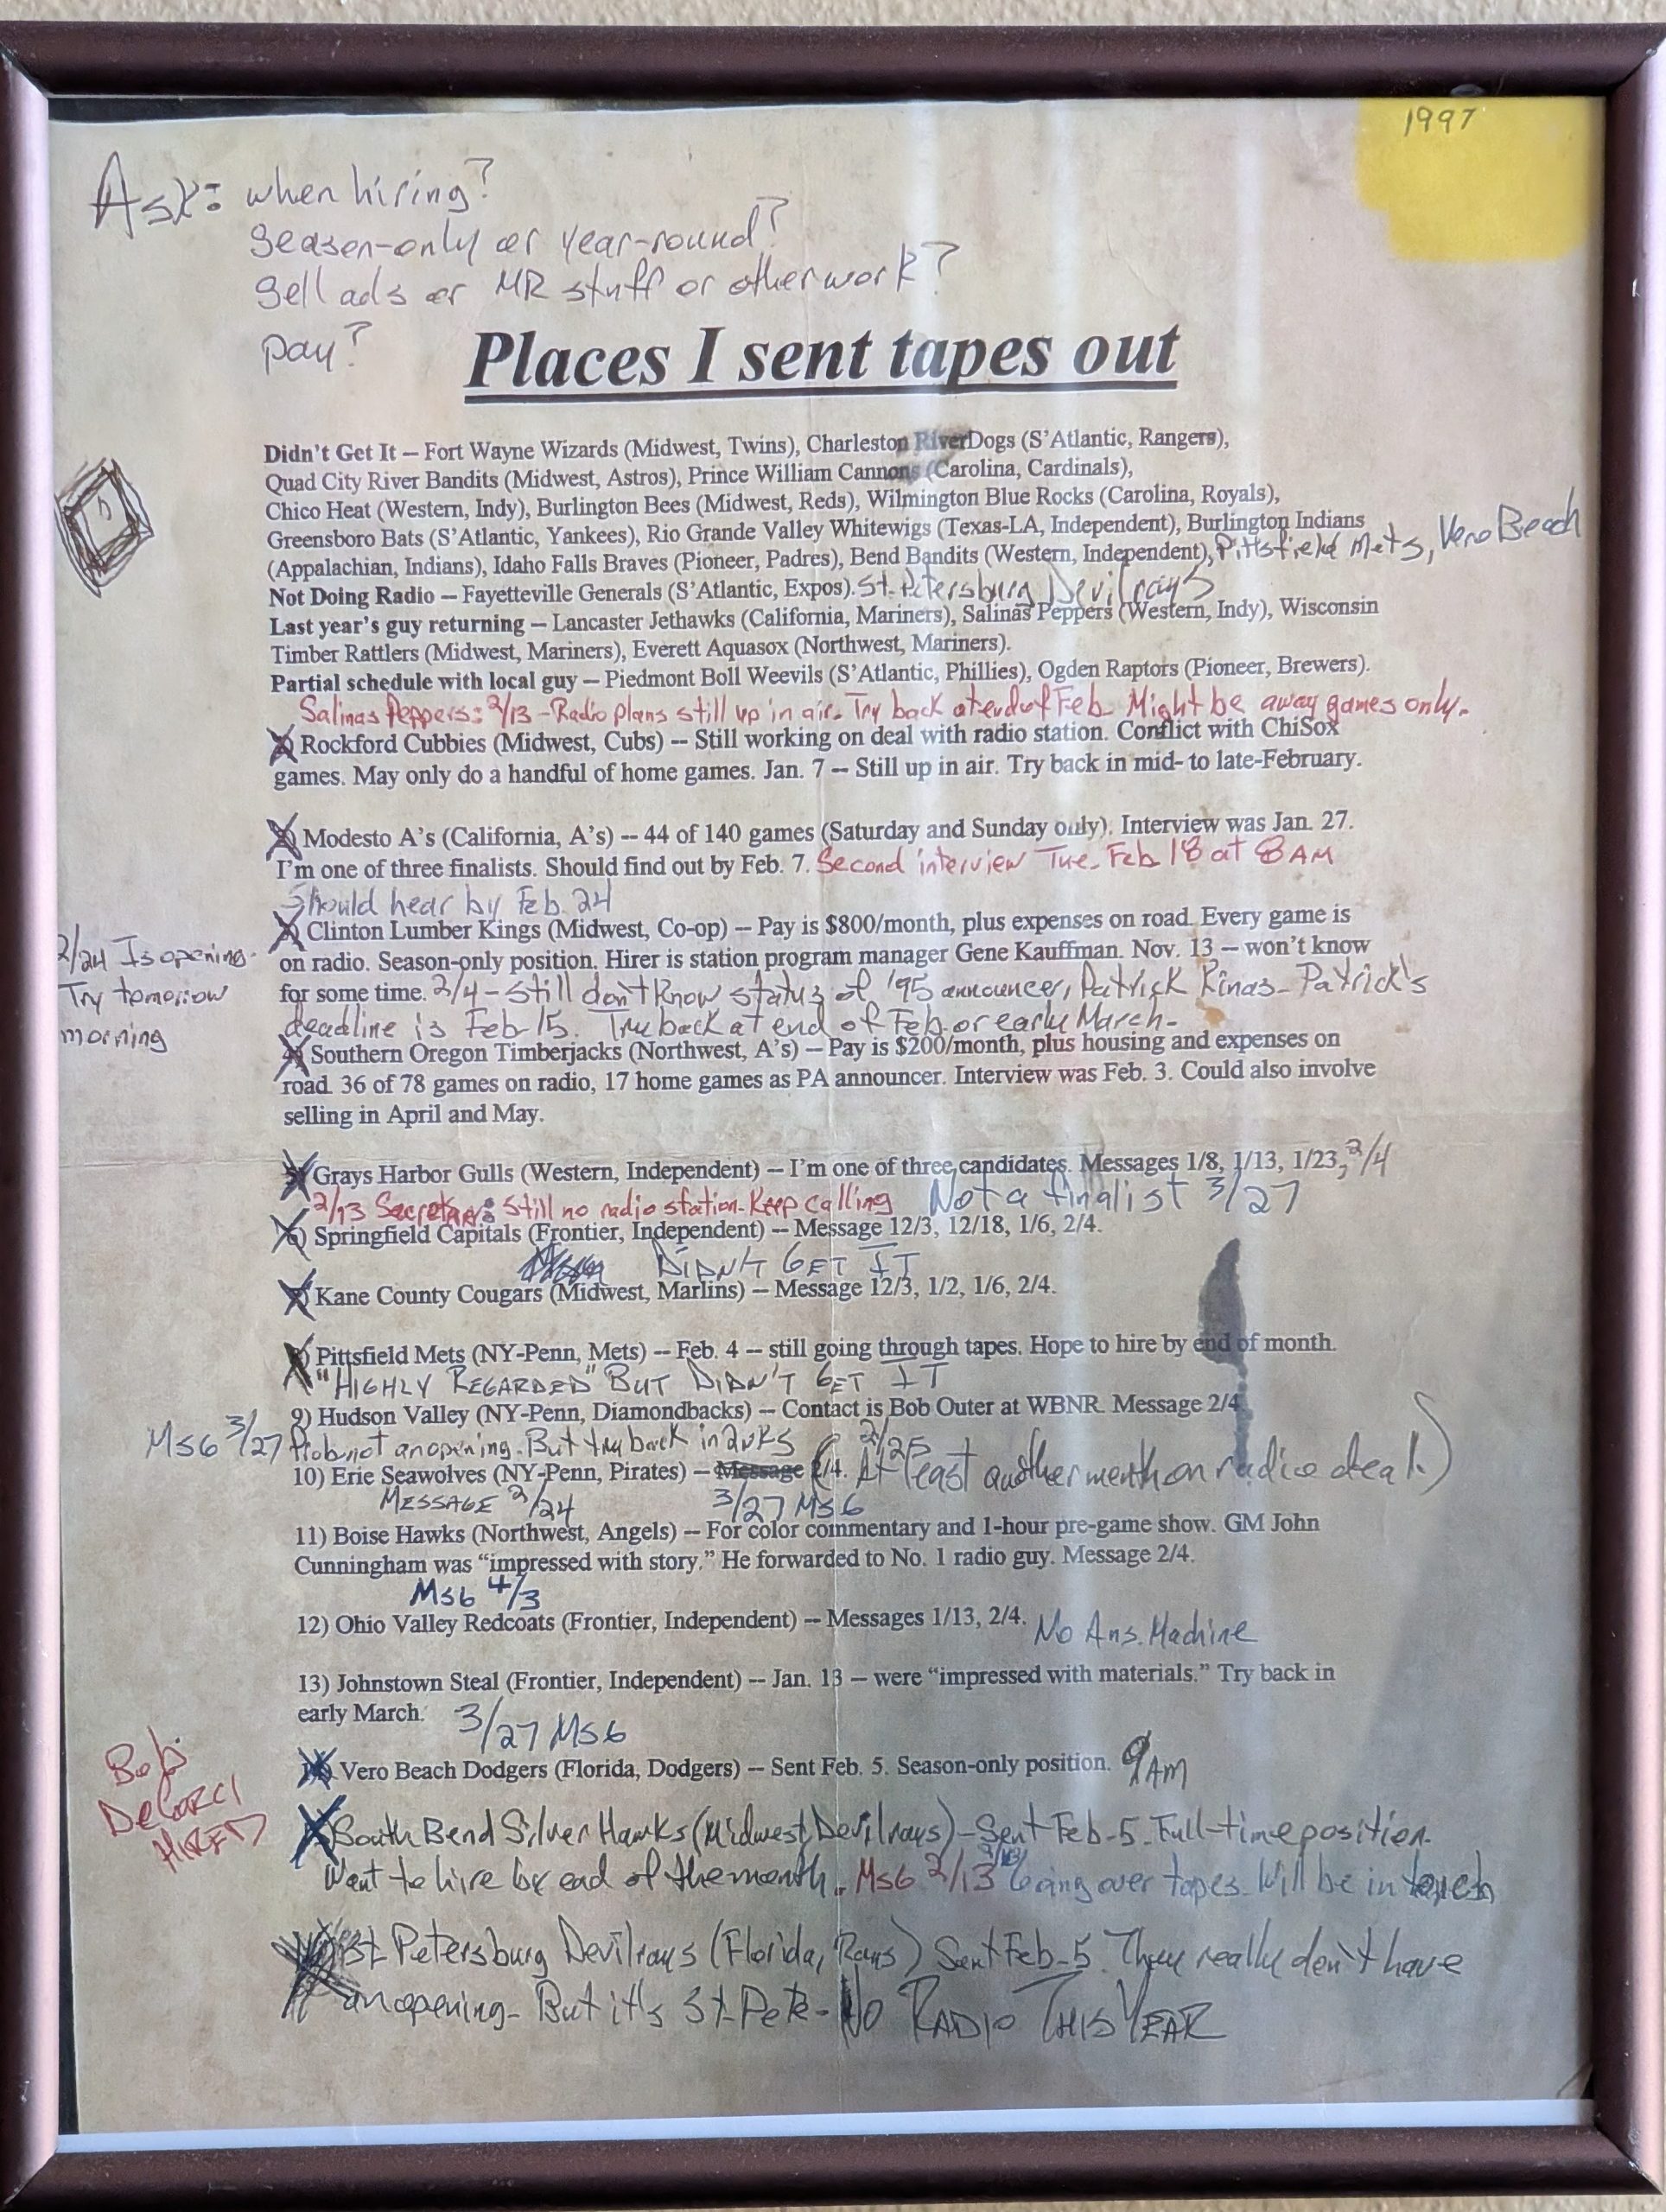 1997
Ask: when hiring?
Season-only or year-round?
Sell ads or MR stuff or other work?
pay?
Places I sent tapes out
Didn't Get It -- Fort Wayne Wizards (Midwest, Twins), Charleston RiverDogs (S'Atlantic, Rangers),
Quad City River Bandits (Midwest, Astros), Prince William Cannons (Carolina, Cardinals),
Chico Heat (Western, Indy), Burlington Bees (Midwest, Reds), Wilmington Blue Rocks (Carolina, Royals),
Greensboro Bats (S'Atlantic, Yankees), Rio Grande Valley Whitewigs (Texas-LA, Independent), Burlington Indians
(Appalachian, Indians), Idaho Falls Braves (Pioneer, Padres), Bend Bandits (Western, Independent), Pittsfield Mets, Vero Beach
Not Doing Radio -- Fayetteville Generals (S'Atlantic, Expos). St. Petersburg Devilrays
Last year's guy returning -- Lancaster Jethawks (California, Mariners), Salinas Peppers (Western, Indy), Wisconsin
Timber Rattlers (Midwest, Mariners), Everett Aquasox (Northwest, Mariners).
Partial schedule with local guy -- Piedmont Boll Weevils (S'Atlantic, Phillies), Ogden Raptors (Pioneer, Brewers).
Salinas Peppers: 2/13 - Radio plans still up in air. Try back at end of Feb. Might be away games only.
Rockford Cubbies (Midwest, Cubs) -- Still working on deal with radio station. Conflict with ChiSox
games. May only do a handful of home games. Jan. 7 -- Still up in air. Try back in mid- to late-February.
Modesto A's (California, A's) -- 44 of 140 games (Saturday and Sunday only). Interview was Jan. 27.
I'm one of three finalists. Should find out by Feb. 7. Second interview Tue. Feb 18 at 8 AM
Should hear by Feb. 24
Clinton Lumber Kings (Midwest, Co-op) -- Pay is $800/month, plus expenses on road. Every game is
2/24 Is opening.
Try tomorrow
morning
on radio. Season-only position. Hirer is station program manager Gene Kauffman. Nov. 13 -- won't know
for some time. 2/4 - still don't know status of '95 announcer, Patrick Kinas - Patrick's
deadline is Feb 15. Try back at end of Feb. or early March.
4) Southern Oregon Timberjacks (Northwest, A's) -- Pay is $200/month, plus housing and expenses on
road. 36 of 78 games on radio, 17 home games as PA announcer. Interview was Feb. 3. Could also involve
selling in April and May.
5) Grays Harbor Gulls (Western, Independent) -- I'm one of three candidates. Messages 1/8, 1/13, 1/23, 2/4
2/13 Secretary: still no radio station. Keep calling Not a finalist 3/27
6) Springfield Capitals (Frontier, Independent) -- Message 12/3, 12/18, 1/6, 2/4.
DIDN'T GET IT
Kane County Cougars (Midwest, Marlins) -- Message 12/3, 1/2, 1/6, 2/4.
Pittsfield Mets (NY-Penn, Mets) -- Feb. 4 -- still going through tapes. Hope to hire by end of month.
"HIGHLY REGARDED" BUT DIDN'T GET IT
9) Hudson Valley (NY-Penn, Diamondbacks) -- Contact is Bob Outer at WBNR. Message 2/4
MSG 3/27 Prob not an opening. But try back in 2 wks
10) Erie Seawolves (NY-Penn, Pirates) -- Message 2/4. (2/25 At least another month on radio deal.)
MESSAGE 2/24 3/27 MSG
11) Boise Hawks (Northwest, Angels) -- For color commentary and 1-hour pre-game show. GM John
Cunningham was "impressed with story." He forwarded to No. 1 radio guy. Message 2/4.
MSG 4/3
12) Ohio Valley Redcoats (Frontier, Independent) -- Messages 1/13, 2/4. No Ans. Machine
13) Johnstown Steal (Frontier, Independent) -- Jan. 13 -- were "impressed with materials." Try back in
early March. 3/27 MSG
Vero Beach Dodgers (Florida, Dodgers) -- Sent Feb. 5. Season-only position. 9 AM
HIRED
South Bend Silver Hawks (Midwest, Devilrays) - Sent Feb. 5. Full-time position.
Want to hire by end of the month. MSG 2/13 Going over tapes. Will be in touch
St. Petersburg Devilrays (Florida, Rays) Sent Feb. 5. They really don't have
an opening - But it's St. Pete - NO RADIO THIS YEAR